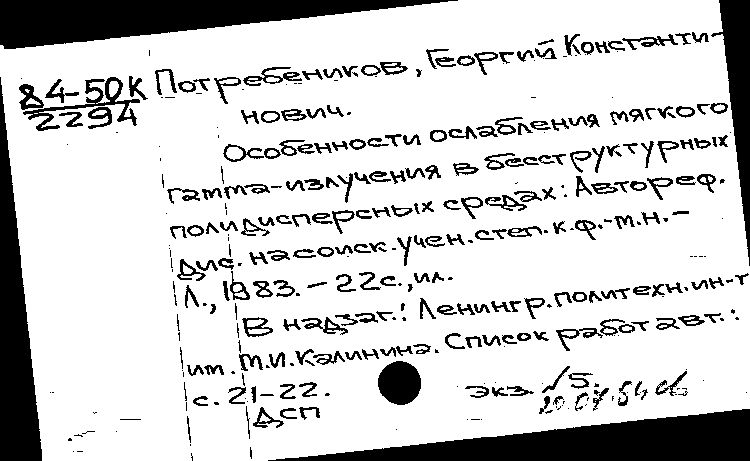 84-50К
2294
Потребеников, Георгий Константи-
нович.
Особенности ослабления мягкого
гамма-излучения в бесструктурных
полидисперсных средах: Автореф.
дис. на соиск. учен. степ. к.ф.-м.н. –
Л., 1983. – 22с., ил.
В надзаг.: Ленингр. политехн. ин-т
им. М.И. Калинина. Список работ авт.:
с. 21-22.
ДСП
экз. √5.